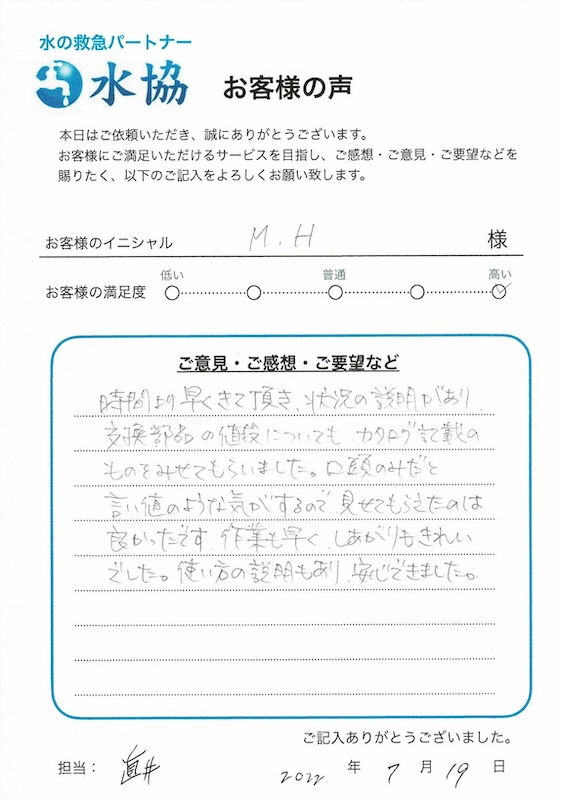 水の救急パートナー
水協 お客様の声
本日はご依頼いただき、誠にありがとうございます。
お客様にご満足いただけるサービスを目指し、ご感想・ご意見・ご要望などを
賜りたく、以下のご記入をよろしくお願い致します。
お客様のイニシャル M.H 様
低い 普通 高い
お客様の満足度
ご意見・ご感想・ご要望など
時間より早くきて頂き、状況の説明があり、
交換部品の値段についても カタログ記載の
ものをみせてもらいました。口頭のみだと
言い値のような気がするので 見せてもらえたのは
良かったです。作業も早く、しあがりもきれい
でした。使い方の説明もあり、安心できました。
ご記入ありがとうございました。
担当： 直井 2022 年 7 月 19 日